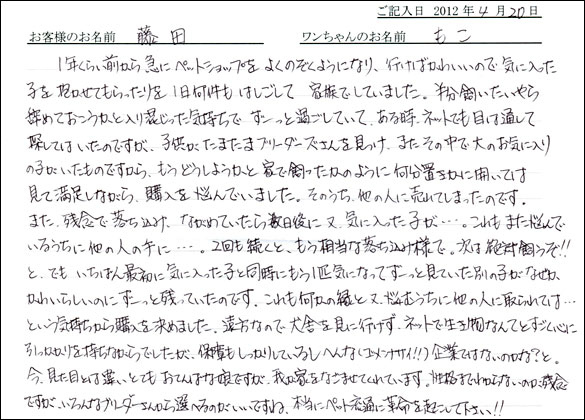 ご記入日 2012年4月20日
お客様のお名前 藤田 ワンちゃんのお名前 もこ
1年くらい前から急にペットショップをよくのぞくようになり、行けばかわいいので気に入った
子を抱かせてもらったりを1日何件もはしごして家族でしていました。半分飼いたいやら
辞めておこうかと入り混じった気持ちでずーっと過ごしていて、ある時、ネットでも目は通して
探してはいたのですが、子供がたまたまブリーダーズさんを見つけ、またその中で大のお気に入り
の子がいたものですから、もうどうしようかと家で飼ったかのように何分置きかに開いては
見て満足しながら、購入を悩んでいました。そのうち、他の人に売れてしまったのです。
また、残念で落ち込み、ながめていたら数日後に又、気に入った子が…。これもまた悩んで
いるうちに他の人の手に…。2回も続くと、もう相当な落ち込み様で。次は絶対飼うぞ!!
と、でもいちばん最初に気に入った子と同時にもう1匹気になってずーっと見ていた別の子がなぜか、
かわいらしいのにずーっと残っていたのです。これも何かの縁と又、悩むうちに他の人に取られては…
という気持ちから購入を決めました。遠方なので犬舎を見に行けず、ネットで生き物なんてとすごく心に
引っかかりを持ちながらでしたが、保障もしっかりしているしへんな(ゴメンナサイ!!)企業ではないのかな?と。
今、見た目とは違いとてもおてんばな娘ですが、我が家をなごませてくれています。性格までわからないのが残念
ですが、いろんなブリーダーさんから選べるのがいいですね。本当にペット流通に革命を起こして下さい!!